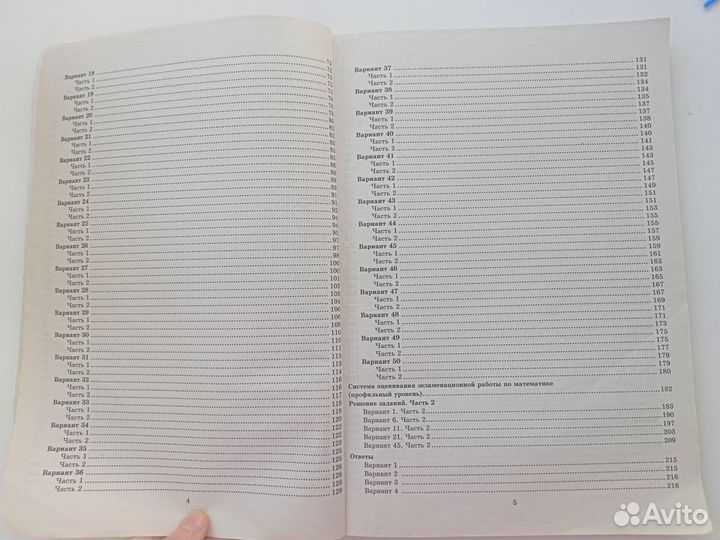 Вариант 18
Часть 1
Часть 2
Вариант 19
Часть 1
Часть 2
Вариант 20
Часть 1
Часть 2
Вариант 21
Часть 1
Часть 2
Вариант 22
Часть 1
Часть 2
Вариант 23
Часть 1
Часть 2
Вариант 24
Часть 1
Часть 2
Вариант 25
Часть 1
Часть 2
Вариант 26
Часть 1
Часть 2 98
Вариант 27 100
Часть 1 100
Часть 2 101
Вариант 28 103
Часть 1 103
Часть 2 104
Вариант 29 106
Часть 1 106
Часть 2 108
Вариант 30 110
Часть 1 110
Часть 2 111
Вариант 31 113
Часть 1 113
Часть 2 114
Вариант 32 116
Часть 1 116
Часть 2 117
Вариант 33 119
Часть 1 119
Часть 2
Вариант 34 122
Часть 1 122
Часть 2
Вариант 35 125
Часть 1 125
Часть 2 126
Вариант 36 128
Часть 1 128
Часть 2 129
4
Вариант 37 131
Часть 1 131
Часть 2 132
Вариант 38 134
Часть 1 134
Часть 2 135
Вариант 39 137
Часть 1 137
Часть 2 138
Вариант 40 140
Часть 1 140
Часть 2 141
Вариант 41 143
Часть 1 143
Часть 2 145
Вариант 42 147
Часть 1 147
Часть 2 149
Вариант 43 151
Часть 1 151
Часть 2 153
Вариант 44 155
Часть 1 155
Часть 2 157
Вариант 45 159
Часть 1 159
Часть 2 161
Вариант 46 163
Часть 1 163
Часть 2 165
Вариант 47 167
Часть 1 167
Часть 2 169
Вариант 48 171
Часть 1 171
Часть 2 173
Вариант 49 175
Часть 1 175
Часть 2 177
Вариант 50 179
Часть 1 179
Часть 2 180
Система оценивания экзаменационной работы по математике
(профильный уровень) 182
Решение заданий. Часть 2
Вариант 1. Часть 2 183
Вариант 6. Часть 2 190
Вариант 11. Часть 2 197
Вариант 21. Часть 2 203
Вариант 45. Часть 2 209
Ответы
Вариант 1 215
Вариант 2 215
Вариант 3 216
Вариант 4 216
5
Avito